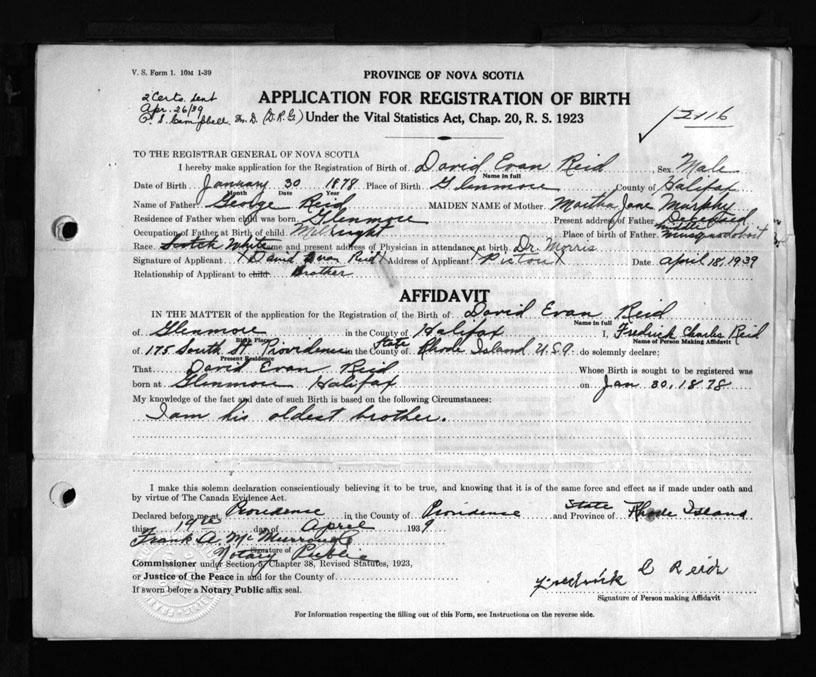 V. S. Form 1. 10M 1-39
PROVINCE OF NOVA SCOTIA
2 Certs. sent
Apr. 26/39
APPLICATION FOR REGISTRATION OF BIRTH
Under the Vital Statistics Act, Chap. 20, R. S. 1923
TO THE REGISTRAR GENERAL OF NOVA SCOTIA
I hereby make application for the Registration of Birth of David Evan Reid Sex Male
Name in full
Date of Birth January 30 1878 Place of Birth Glenmore County of Halifax
Month Day Year
Name of Father George Reid MAIDEN NAME of Mother Martha Jane Murphy
Residence of Father when child was born Glenmore Present address of Father Deceased
Occupation of Father at Birth of child Millwright Place of birth of Father middle musquodoboit
Race Scotch White Name and present address of Physician in attendance at birth Dr. Morris
Signature of Applicant (David Evan Reid) Address of Applicant (Pictou) Date April 18, 1939
Relationship of Applicant to child Brother
AFFIDAVIT
IN THE MATTER of the application for the Registration of the Birth of David Evan Reid
Name in full
of Glenmore in the County of Halifax I, Fredrick Charles Reid
Birth Place Name of Person Making Affidavit
of 175 South St. Providence in the County of State Rhode Island U.S.A. do solemnly declare:
Present Residence
That David Evan Reid Whose Birth is sought to be registered was
born at Glenmore Halifax on Jan 30, 1878
My knowledge of the fact and date of such Birth is based on the following Circumstances:
I am his oldest brother.
I make this solemn declaration conscientiously believing it to be true, and knowing that it is of the same force and effect as if made under oath and
by virtue of The Canada Evidence Act.
Declared before me at Providence in the County of Providence and Province of State Rhode Island
this 19th day of April 1939
Frank A. McMurrough
Signature of
Notary Public
Commissioner under Section 5, Chapter 38, Revised Statutes, 1923,
or Justice of the Peace in and for the County of
If sworn before a Notary Public affix seal.
Fredrick C Reid
Signature of Person making Affidavit
For Information respecting the filling out of this Form, see Instructions on the reverse side.